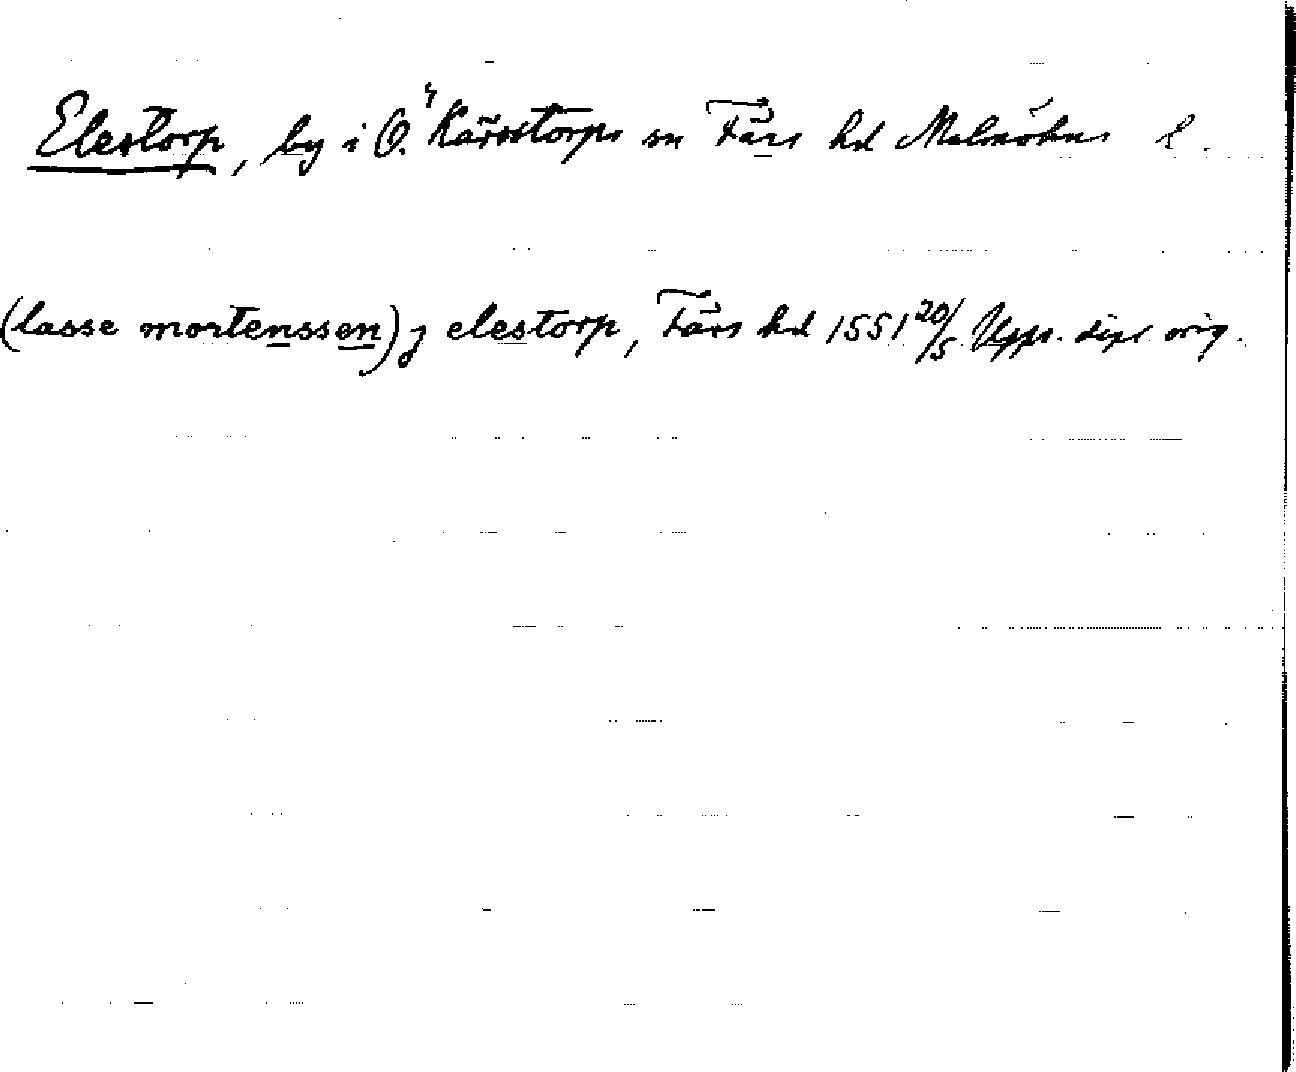 Elestorp, by i Ö. Kärrstorps sn Färs hd Malmöhus l.
(lasse mortenssen) j elestorp, Färs hd 1551 20/5 Upps. dipl orig.